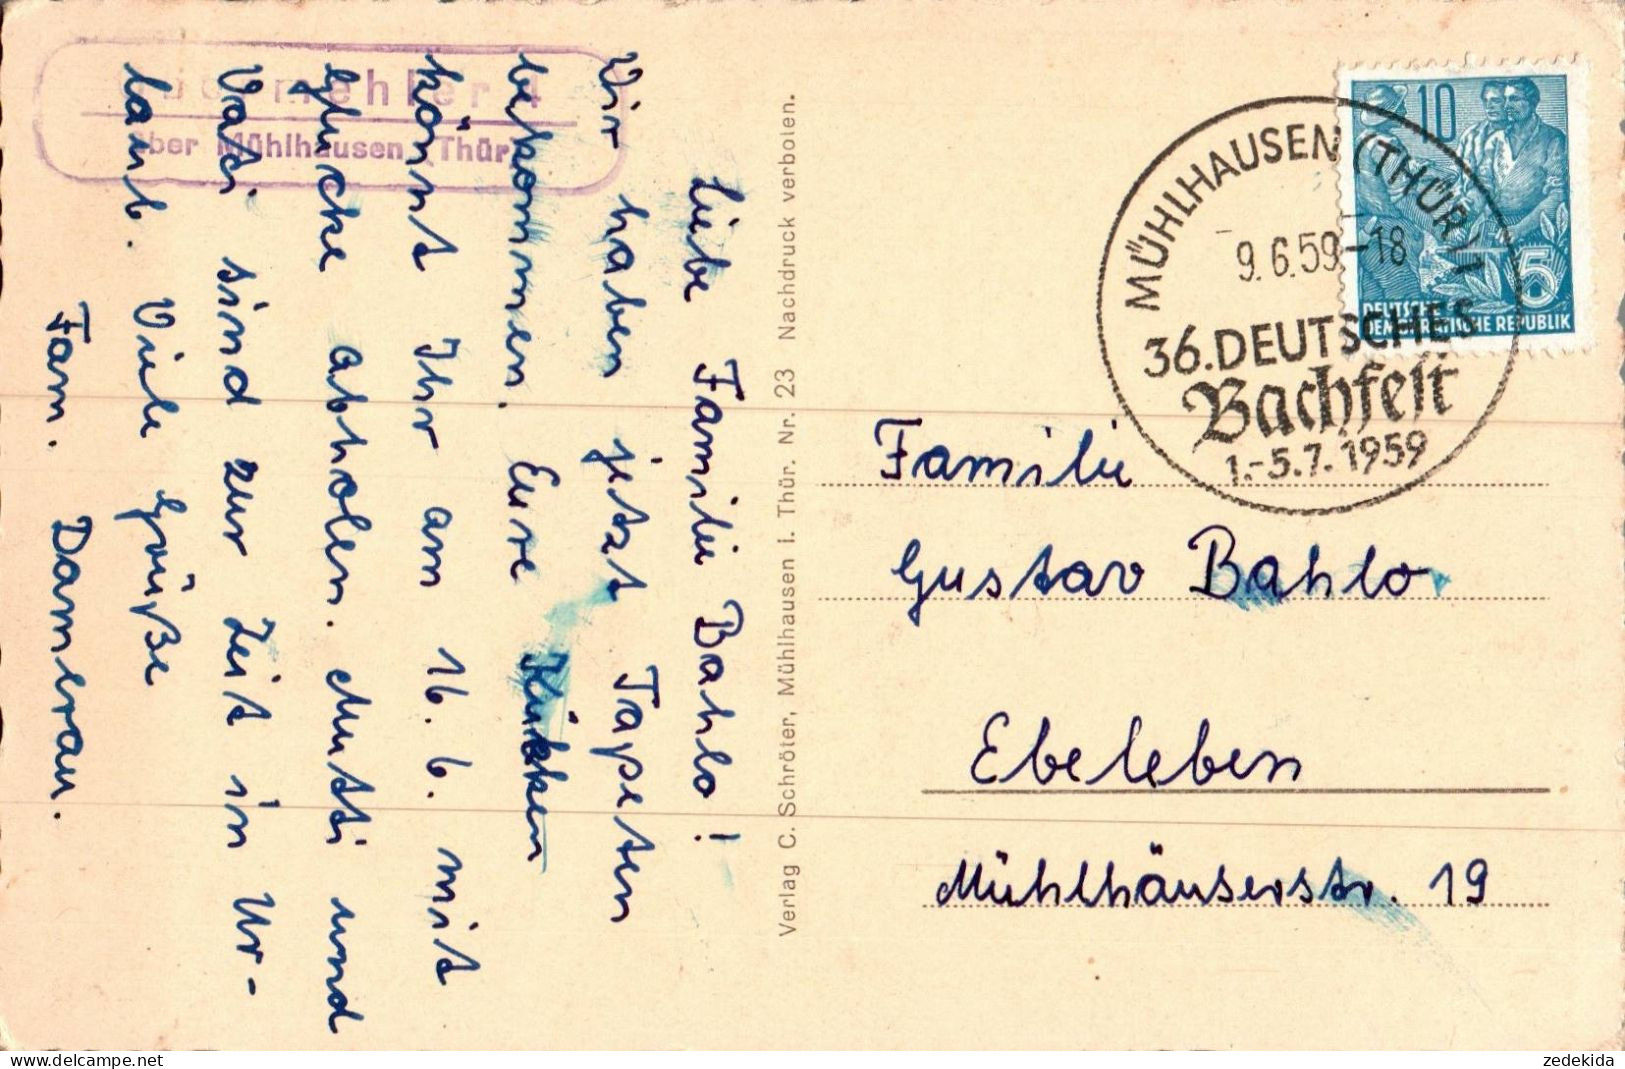 über Mühlhausen (Thür)
Liebe Familie Bahlo!
Wir haben jetzt Tapeten
bekommen. Eure Kükken
könnt Ihr am 16. 6. mit
Glucke abholen. Mutti und
Vati sind zur Zeit in Ur-
laub. Viele Grüße
Fam. Damerau.
Verlag C. Schröter, Mühlhausen i. Thür. Nr. 23 Nachdruck verboten.
MÜHLHAUSEN (THÜR) 1
9.6.59-18
36. DEUTSCHES
Bachfest
1.-5.7.1959
10
5
DEUTSCHE
DEMOKRATISCHE REPUBLIK
Familie
Gustav Bahlo
Ebeleben
Mühlhäuserstr. 19
zedekida